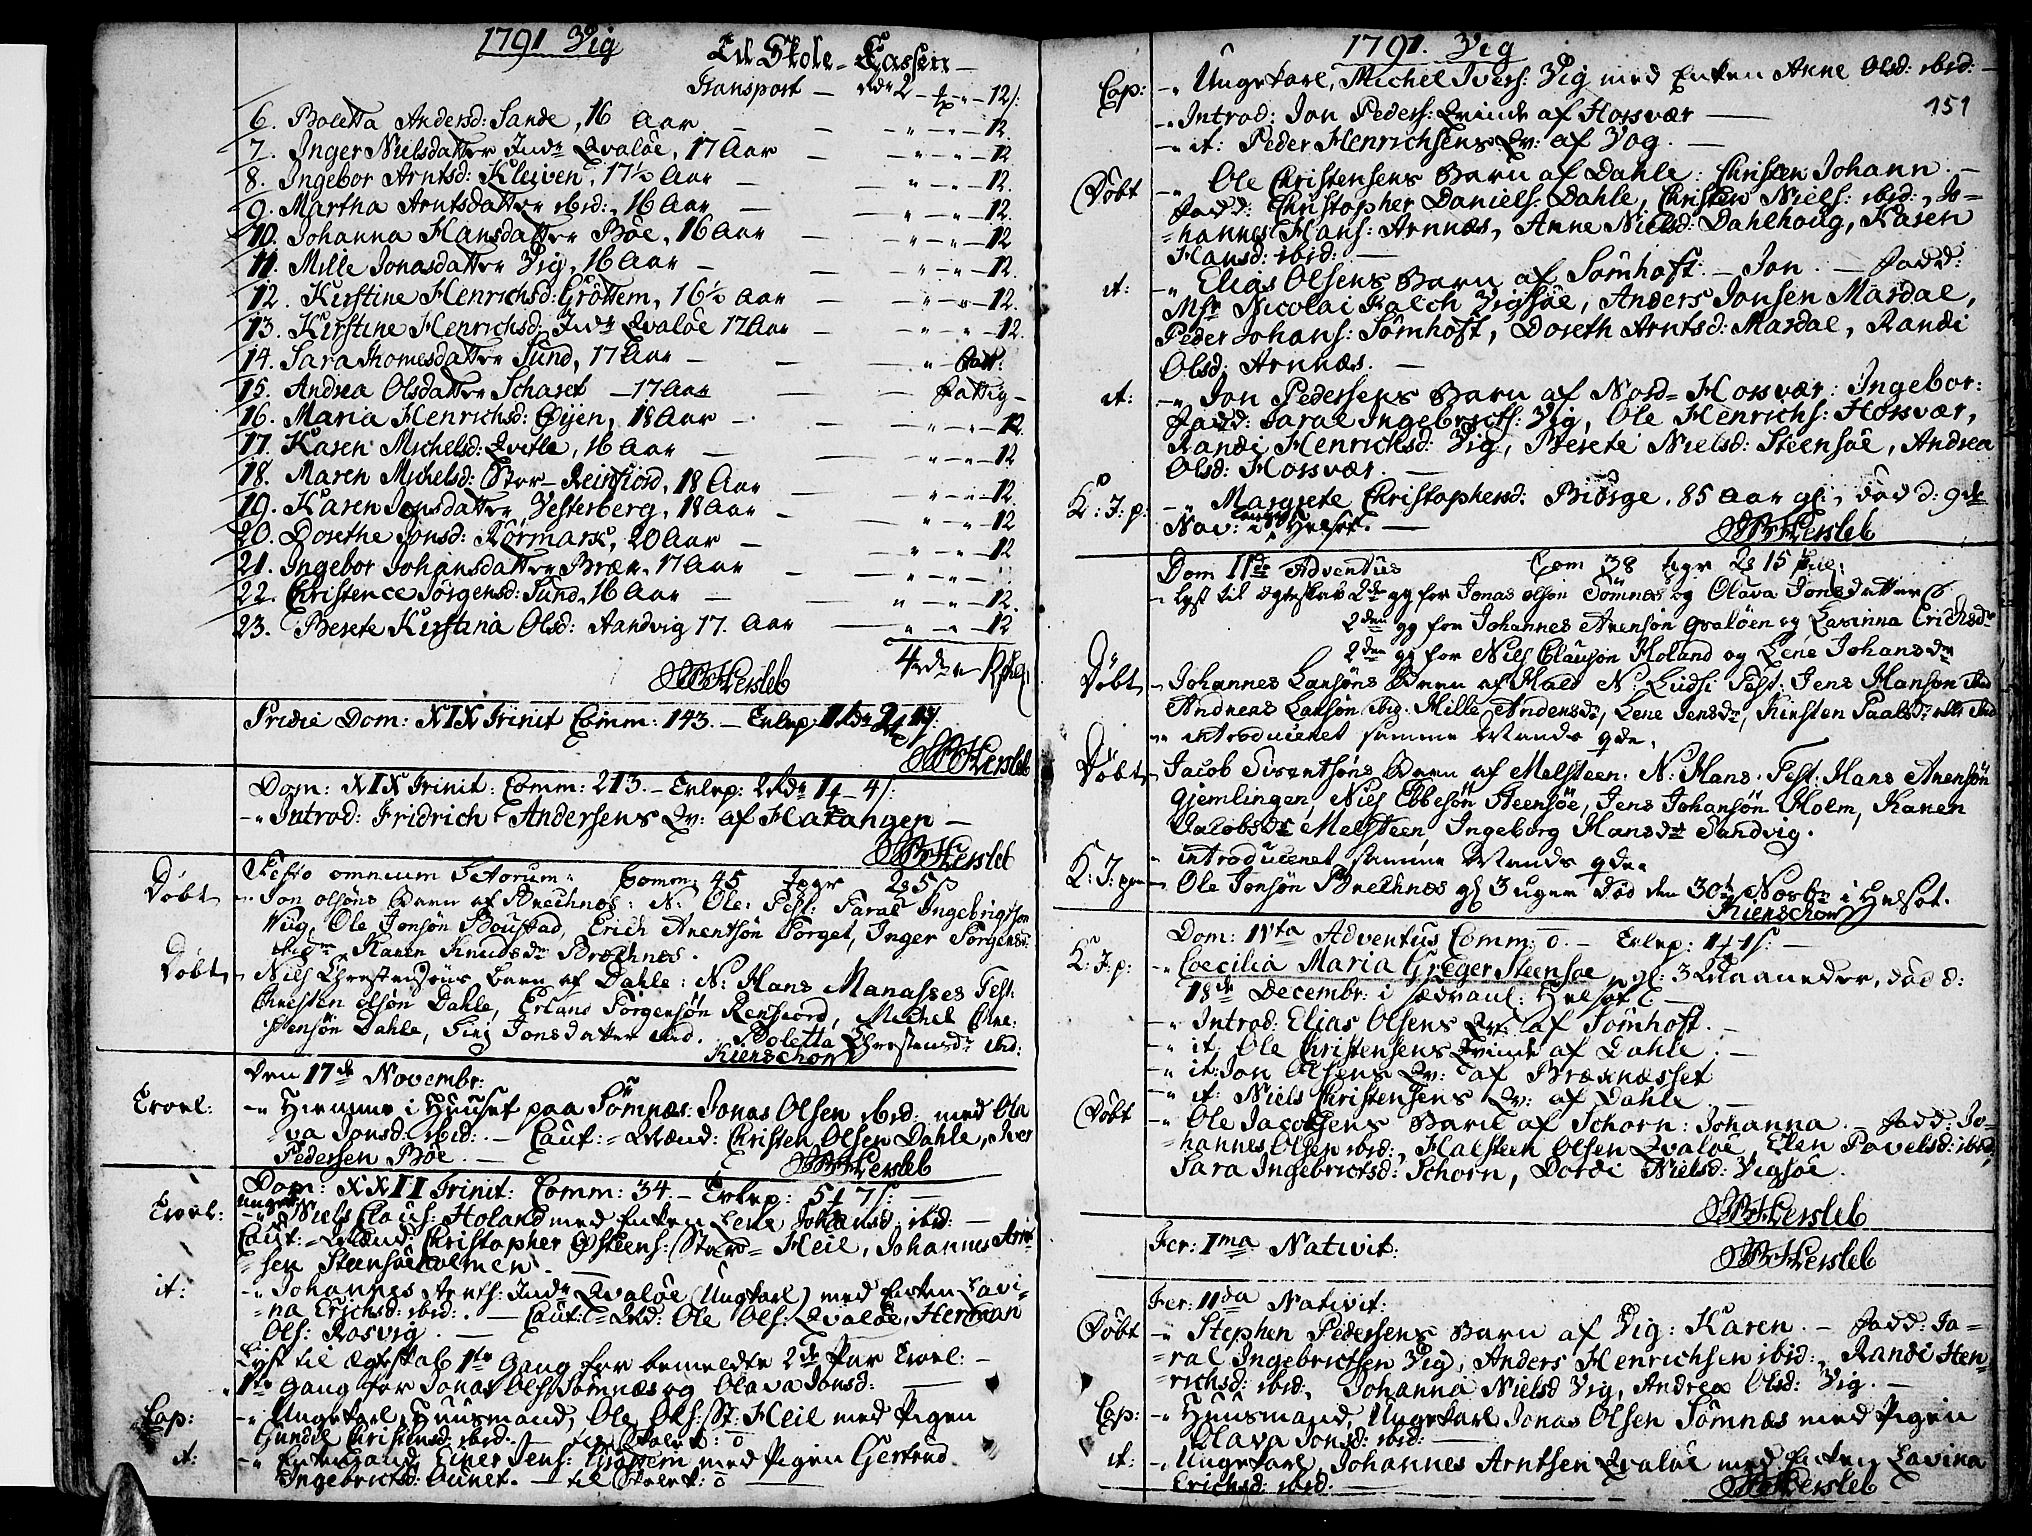 1791 Vig
Til Skole-Cassen
Transport — rdr 2 - 12 s:
6. Boletta Andersd: Sande, 16 Aar — 12.
7. Inger Nielsdatter Indr Qvaløe, 17 Aar — 12
8. Ingebor Arntsd: Kleiven, 17½ Aar — 12.
9. Martha Arntsdatter ibid:, 16 Aar — 12
10. Johanna Hansdatter Bøe, 16 Aar — 12
11. Mille Jonasdatter Vig, 16 Aar — 12.
12. Kirstine Henrichsd: Grøttem, 16½ Aar — 12.
13. Kirstine Henrichsd: Indr Qvaløe 17 Aar — 12.
14. Sara Thomesdatter Sund, 17 Aar — fatt:
15. Andrea Olsdatter Scharet — 17 Aar — fattig —
16. Maria Henrichsd: Øyen, 18 Aar — 12.
17. Karen Michelsd: Qvitle, 16 Aar — 12
18. Maren Michelsd: Stor-Reinfiord, 18 Aar — 12.
19. Karen Jonsdatter Vesterberg, 18 Aar — 12
20. Dorethe Jonsd: Rørmark, 20 Aar — 12
21. Ingebor Johansdatter Bræk, 17 Aar —
22. Christence Jørgensd: Sund, 16 Aar — 12.
23. Berete Kirstina Olsd: Aandvig 17. Aar — 12
4 rdr
Hersleb
Pridie Dom: XIX Trinit Comm: 143. — Erlep:
Hersleb
Dom: XIX Trinit: Comm: 213. — Erlep: 2 Rdr 1 4 - 4 s:
-" Introd: Fridrich Andersens Qv: af Hatangen —
Hersleb
Festo omnium Sctorum: Comm: 45
Døbt -" Jon olsøns Barn af Bræchnes: N: Ole: Test: Saral Ingebrigtson
Viig, Ole Jonsøn Boustad, Erich Arentsøn Torget, Inger Jørgensd:
ibidm Karen Knudsdr Bræchnes.
Døbt - Niels Christensøns barn af Dahle: N: Hans Manasses Test:
Christen olsøn Dahle, Erland Jørgensøn Rensfiord, Michel
Dahle, Siri Jonsdatter ibid. Boletta Christensdr ibid:
Kienschow
Den 17de Novembr:
Trol: -" Hiemme i Huuset paa Sømnæs: Jonas Olsen ibid: med Ola
va Jonsd: ibid: — Caut:-Mænd: Christen Olsen Dahle, Iver
Pedersen Bøe. —
Hersleb
Dom: XXII Trinit: Comm: 34. — Erlep: 5 ½ 7 s: —
Trol: -" Niels Claus: Holand med Enken Lene Johansd: ibid: —
Caut:-Mænd: Christopher Østeens: Stor-Heil, Johannes Arnt-
sen Steensøeholmen. —
it: -" Johannes Arnts: Indr Qvaløe (Ungkarl) med Enken Lavi-
na Erichsd: ibid: — Caut:-Md: Ole Ols: Qvaløe, Herman
Ols: Rosvig. —
Lyst til Ægteskab 1te Gang for bemeldte 2de Par Trol: —
1te Gang for Jonas Ols: Sømnæs og Olava Jonsd: —
Cop: -" Ungekarl, Huusmand, Ole Ols: St: Heil med Pigen
Gundel Christensd: ibid. — til Skolet: 0
it: -" Enkemand Einer Jens: Grøttem med Pigen Giertrud
Ingebrictsd: Aunet. — til Skolet: 0 —
1791. Vig
151
Cop: -" Ungekarl, Michel Ivers: Vig med Enken Anne Olsd: ibid: —
-" Introd: Jon Peders: Qvinde af Horsvær —
-" it: Peder Henrichsens Qv: af Vog. —
Døbt -" Ole Christensens Barn af Dahle: Christen Johann. —
Fadd: Christopher Daniels: Dahle, Christen Niels: ibid:, Jo-
hannes Hans: Arnnæs, Anne Nielsd: Dahlhoug, Karen
Hansd: ibid: —
it: -" Elias Olsens Barn af Sømhoft. — Jon. — Fadd:
Msr Nicolai Falch Vigsøe, Anders Jonsen Mardal,
Peder Johans: Sømhoft, Doreth Arntsd: Mardal, Randi
Olsd: Arnnæs. —
it: -" Jon Pedersens Barn af Nord-Horsvær: Ingebor:
Fadd: Saral Ingebricts: Vig, Ole Henrichs: Horsvær,
Randi Henrichsd: Vig, Berete Nielsd: Steensøe, Andrea
Olsd: Horsvær. —
K: J: p: -" Margrete Christophersd: Biørge. 85 Aar gl:, død d: 9de
Nov: i Helset. —
Hersleb
Dom IIda Adventus Com 38
- Lyst til ægteskab 2den gg for Jonas olsøn Sømnes og Olava Jonsdatter
2den gg for Johannes Arensøn Qvaløen og Lavinna Erichsdr
2den gg for Niels Clausøn Holand og Lene Johansdr
Døbt - Johannes Larsøns Barn af Hald N: Ludsi Test: Jens Hansøn ibid
Andreas Larsøn ibig. Mille Andersdr, Lene Jensdr, Kirsten Paalsdr
- introduceret samme Mands qde.
Døbt - Jacob Sivertsøns Barn af Melsteen. N: Hans. Test: Hans Arensøn
Giemlingen, Niels Ebbesøn Steensøe, Jens Johansøn Holm, Karen
Jacobsdr Melsteen Ingeborg Hansdr Sandvig.
- introduceret samme Mands qde.
K: J: p - Ole Jonsøn Bræchnes gl 3 uger død den 30te Novbr i Helset.
Kienschow
Dom: IVta Adventus Comm: 0. — Erlep: 1 ½ 1 s: —
K: J: p: -" Cæcilia Maria Greger Steensøe, gl: 3 Maaneder, død d:
18de Decembr: i sædvanl: Helset. —
-" Introd: Elias Olsens Qv: af Sømhoft. —
-" it: Ole Christensens Qvinde af Dahle. —
-" it: Jon Olsens Qv: af Bræknæsset
-" it: Niels Christensens Qv: af Dahle. —
Døbt -" Ole Jacobsens Barn af Schorn: Johanna. — Fadd: Jo-
hannes Olsen ibid:, Halsteen Olsen Qvaløe, Elen Povelsd: ibid:,
Sara Ingebrictsd: Schorn, Dordi Nielsd: Vigsøe.
Hersleb
Fer: Ima Nativit:
Hersleb
Fer: IIda Nativit:
Døbt -" Stephen Pedersens Barn af Vig: Karen. — Fadd: Sa-
ral Ingebrictsen Vig, Anders Henrichsen ibid:, Randi Hen-
richsd: ibid:, Johanna Nielsd Vig, Andrea Olsd: Vig. —
Cop: -" Huusmand, Ungekarl Jonas Olsen Sømnæs med Pigen
Olava Jonsd: ibid: —
it: -" Ungekarl, Johannes Arntsen Qvaløe med Enken Lavina
Erichsd: ibid: —
Hersleb